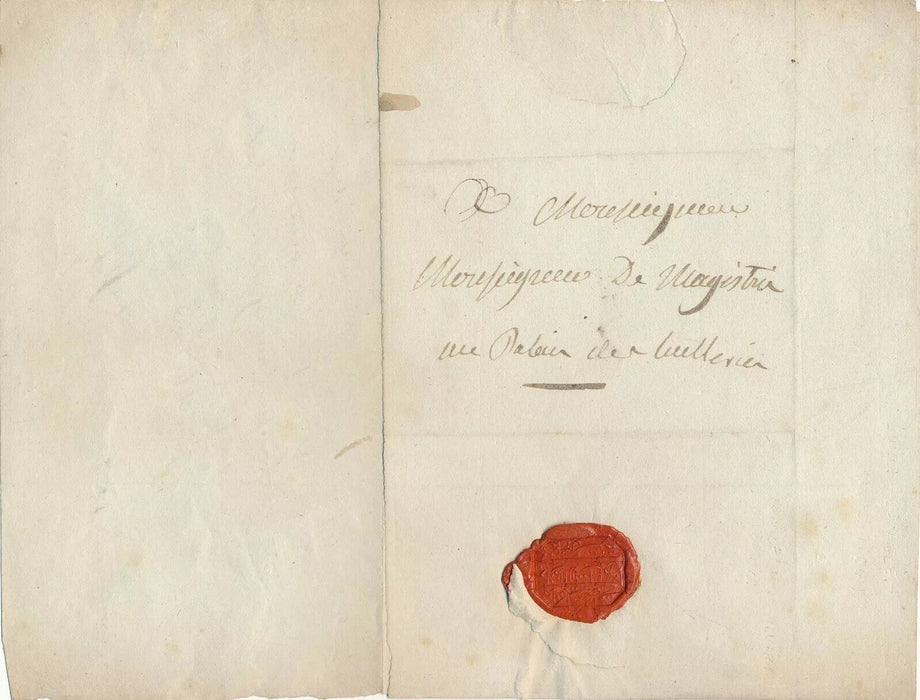 A Monseigneur
Monseigneur De Magistris
au Palais des tuilleries